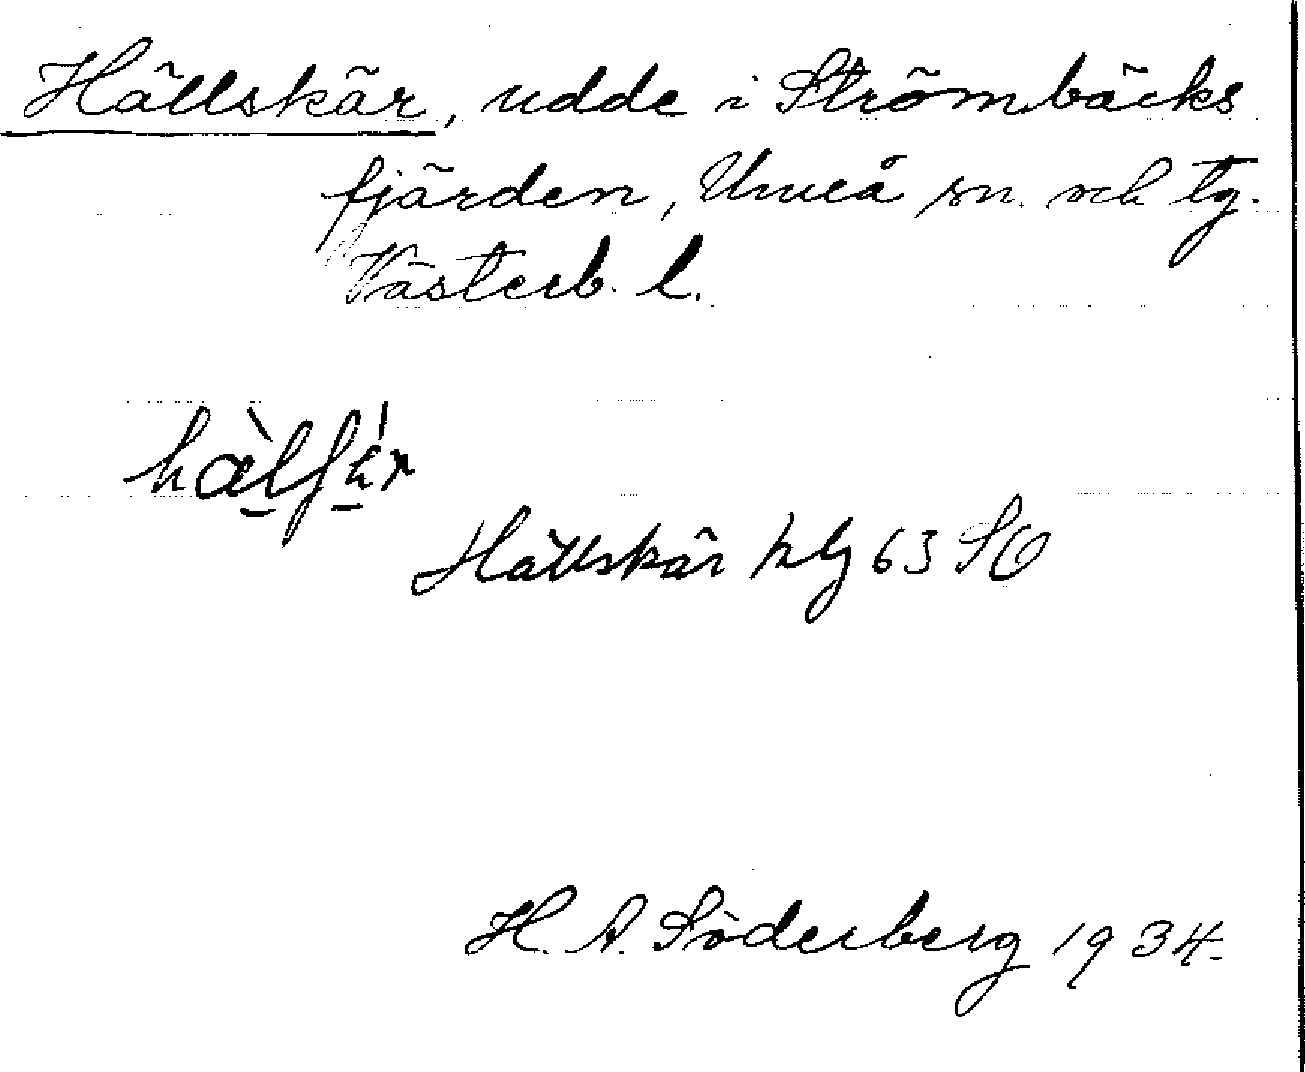 Hällskär, udde i Strömbäcks
fjärden, Umeå sn. och tg.
Västerb. l.
Hällskär blg 63 SO
H. A. Söderberg 1934.